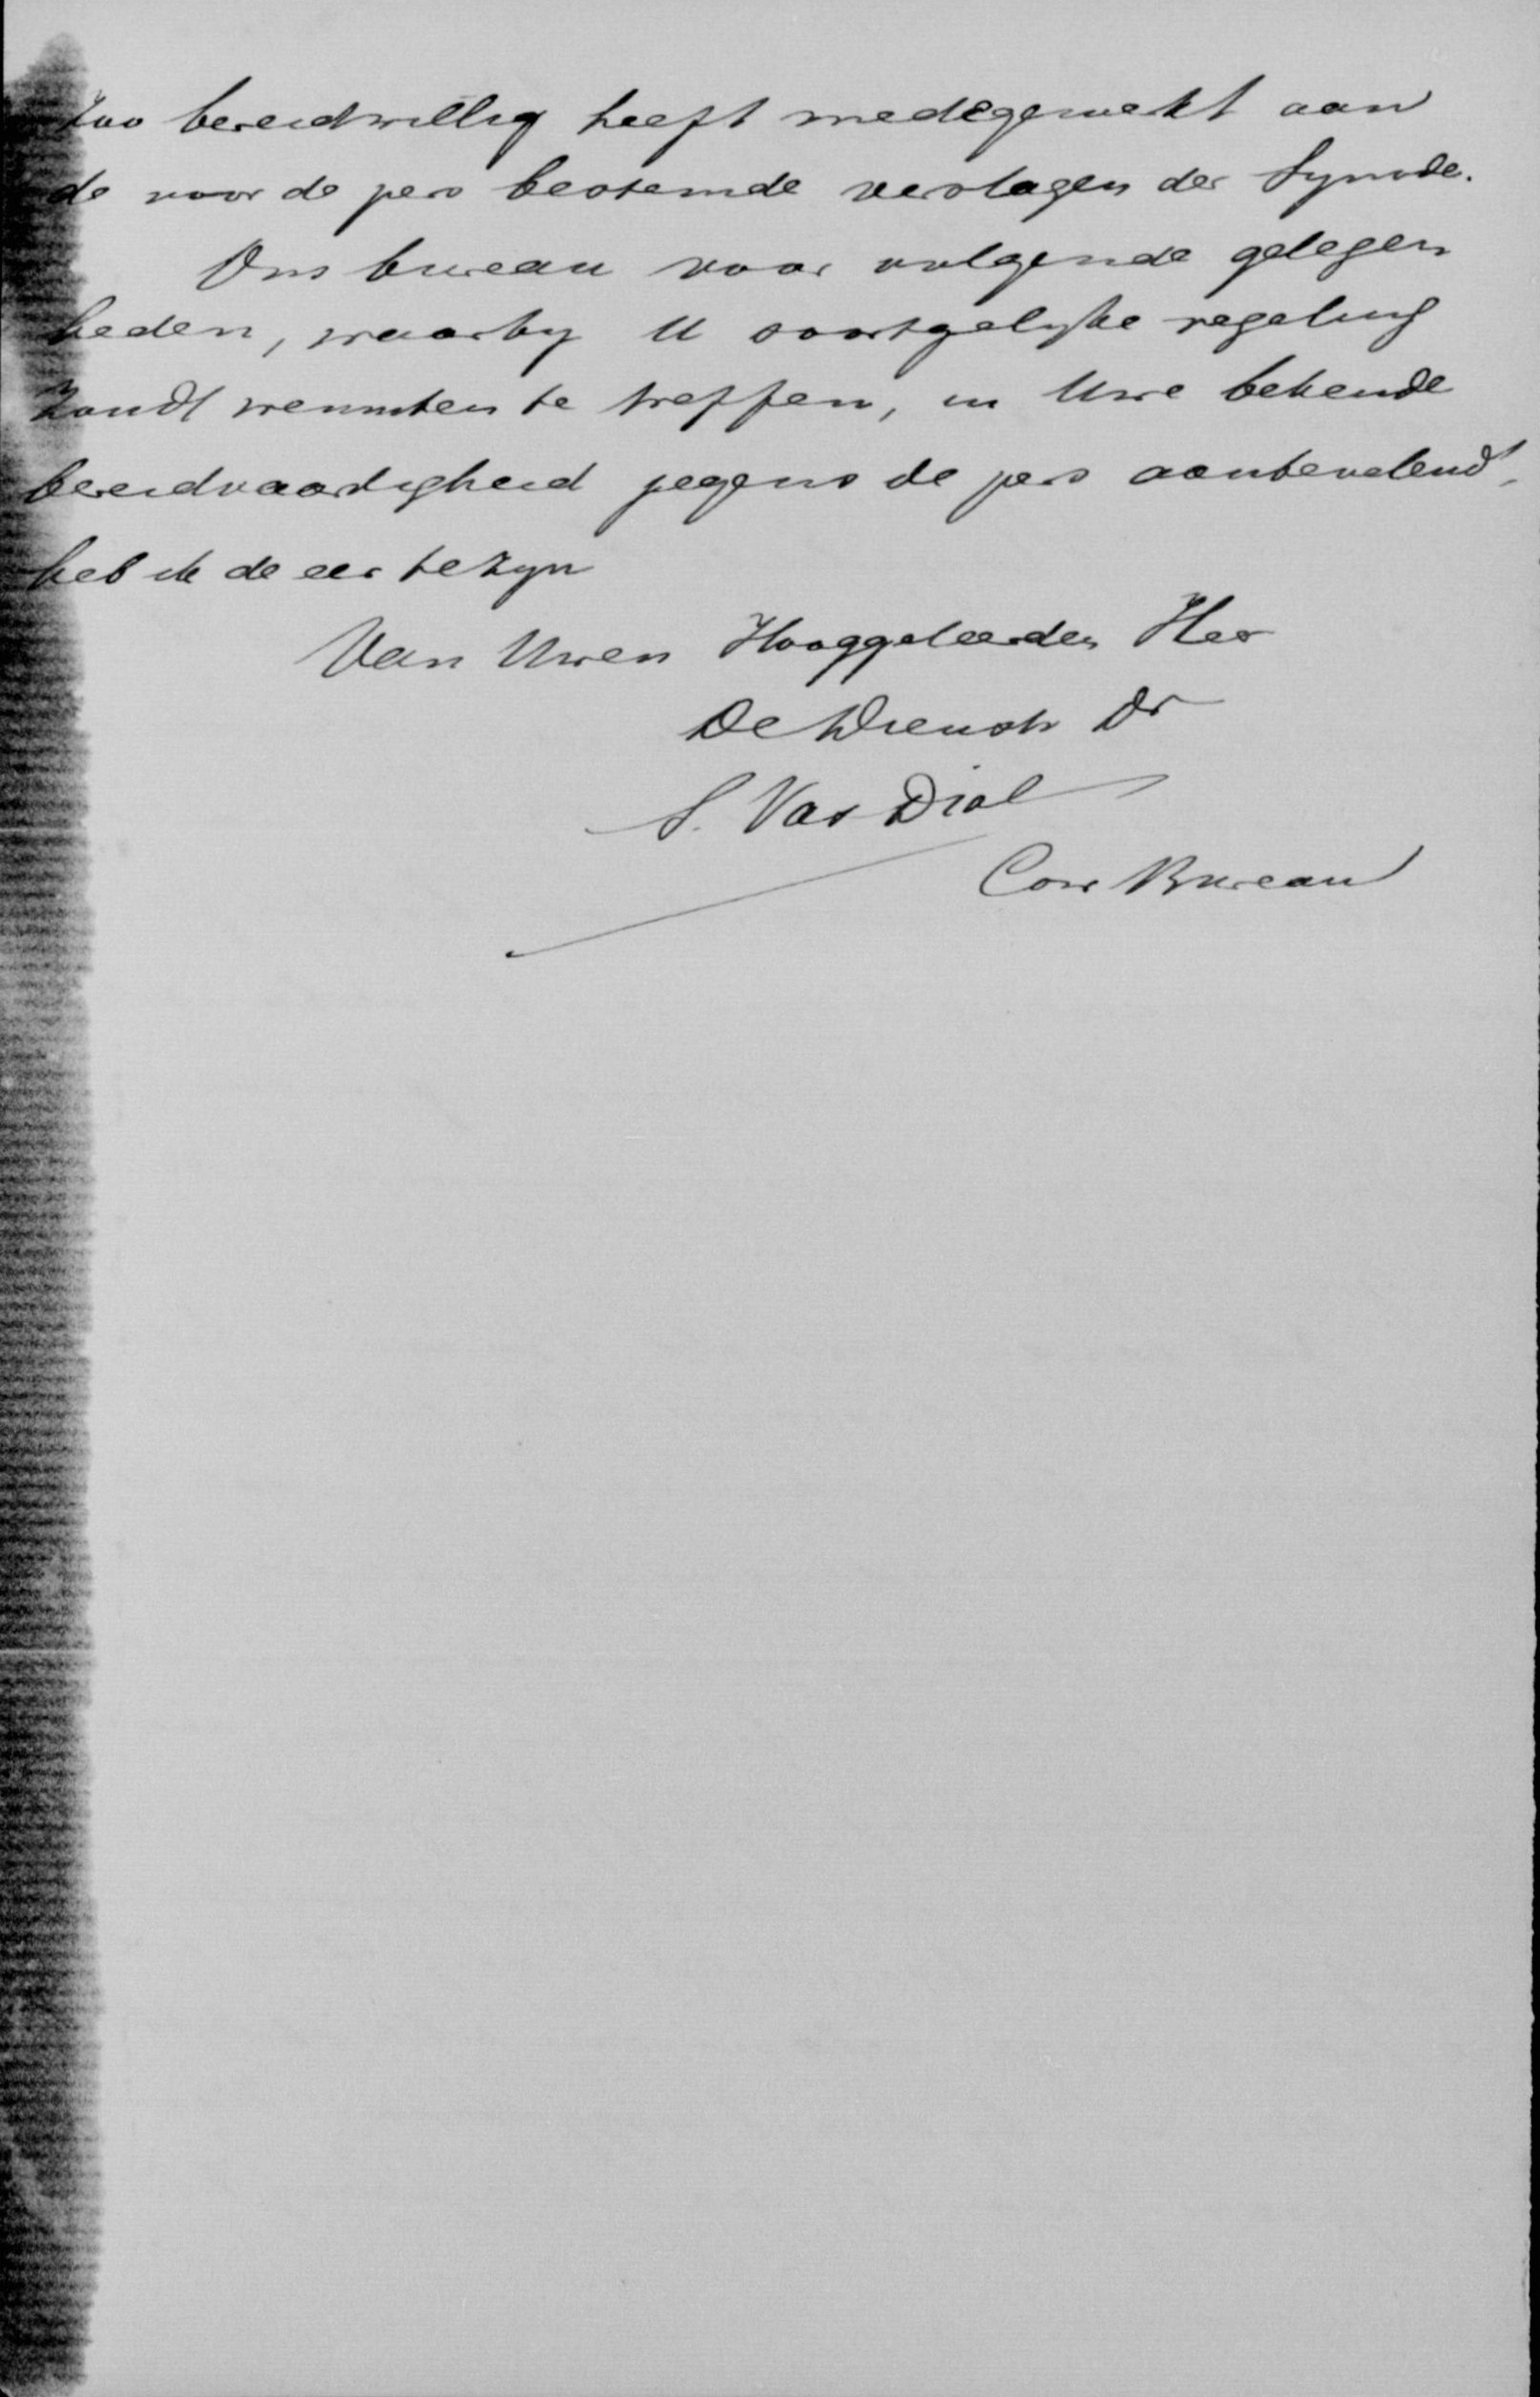 zoo bereidwillig heeft medegewerkt aan
de voor de pers bestemde verslagen der Synode.
Ons bureau voor volgende gelegen
heden, waarby U soortgelyke regeling
zoudt wenschen te treffen, in Uwe bekende
bereidvaardigheid jegens de pers aanbevelend,
heb ik de eer te zyn
Van Uwen Hooggeleerden Heer
De Dienstv Dr
S. Vas Dial
Corr Bureau